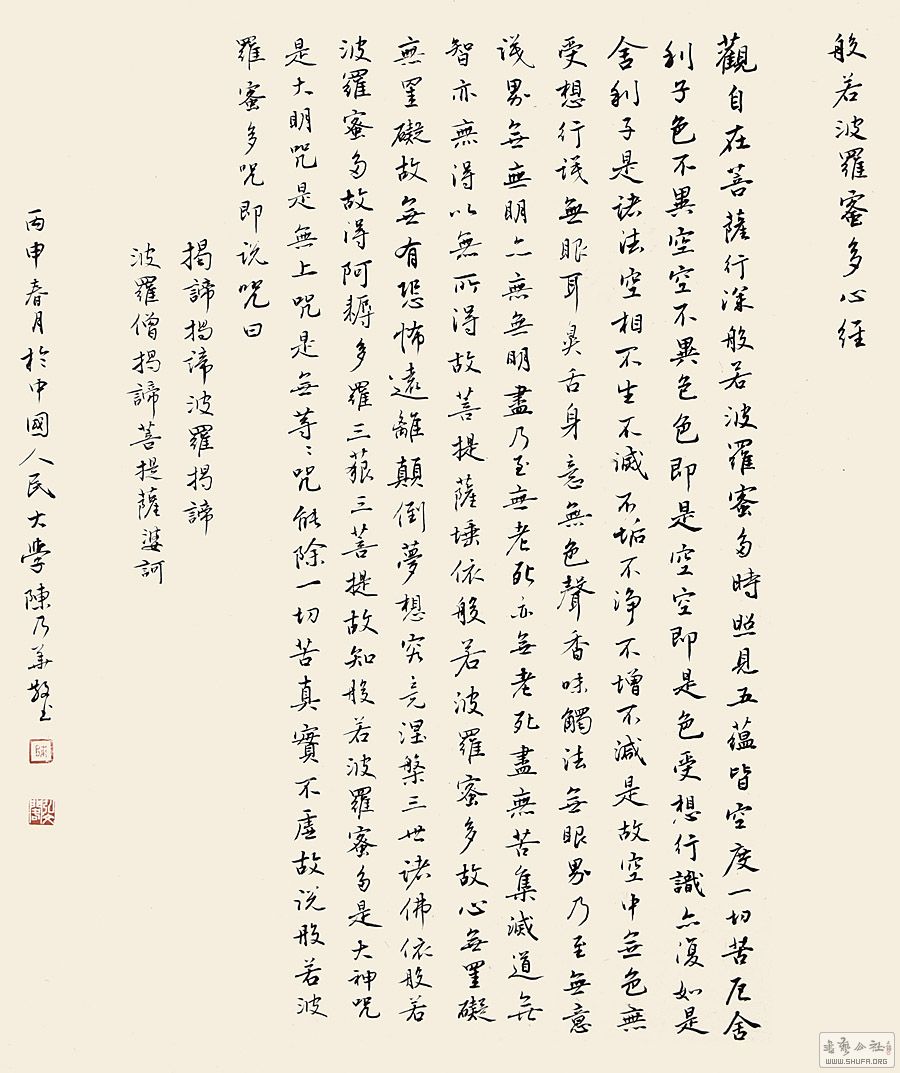 般若波羅蜜多心經
觀自在菩薩行深般若波羅蜜多時照見五蘊皆空度一切苦厄舍
利子色不異空空不異色色即是空空即是色受想行識亦復如是
舍利子是諸法空相不生不滅不垢不淨不增不減是故空中無色無
受想行識無眼耳鼻舌身意無色聲香味觸法無眼界乃至無意
識界無無明亦無無明盡乃至無老死亦無老死盡無苦集滅道無
智亦無得以無所得故菩提薩埵依般若波羅蜜多故心無罣礙
無罣礙故無有恐怖遠離顛倒夢想究竟涅槃三世諸佛依般若
波羅蜜多故得阿耨多羅三藐三菩提故知般若波羅蜜多是大神咒
是大明咒是無上咒是無等〻咒能除一切苦真實不虛故說般若波
羅蜜多咒即說咒曰
揭諦揭諦波羅揭諦
波羅僧揭諦菩提薩婆訶
丙申春月於中國人民大學陳乃華敬書
WWW.SHUFA.ORG